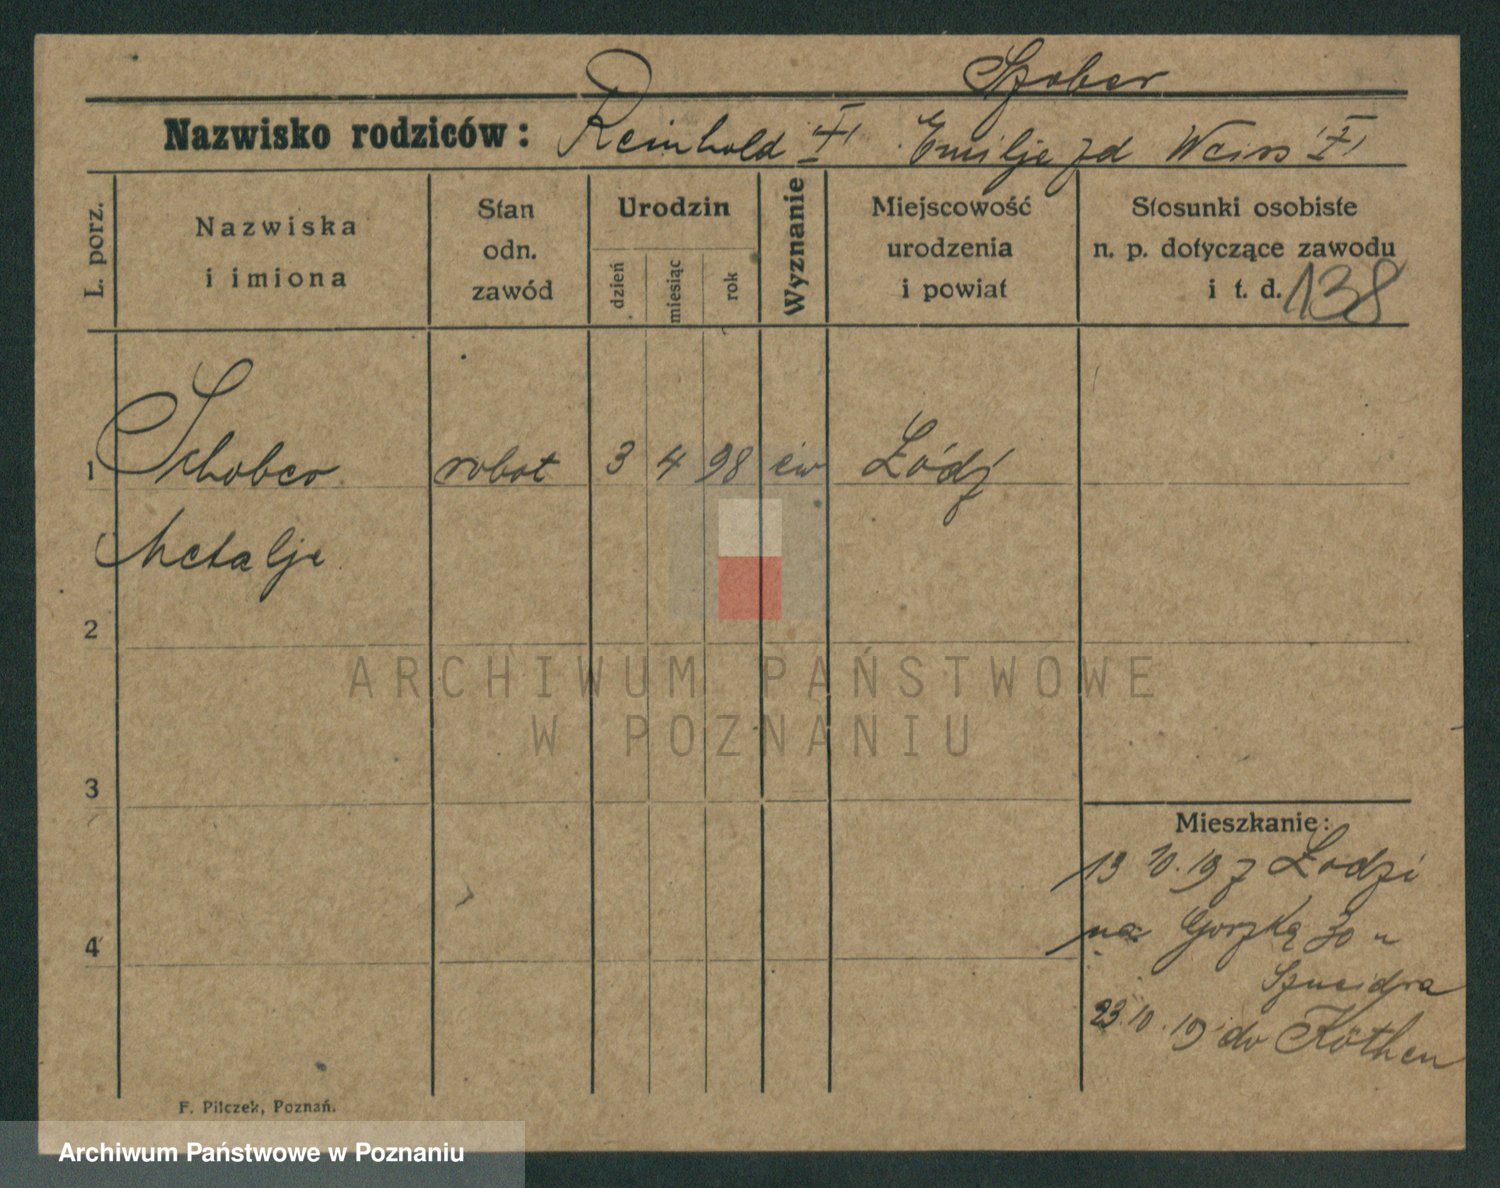 Szober
Nazwisko rodziców: Reinhold "I" Emilje zd Weiss "I"
L. porz.
Nazwiska
i imiona
Stan
odn.
zawód
Urodzin
dzień
miesiąc
rok
Wyznanie
Miejscowość
urodzenia
i powiat
Stosunki osobiste
n. p. dotyczące zawodu
i t. d. 138
1 Schober robot 3 4 98 ew Łódź
Metalje
2
3
4
Mieszkanie:
13 10. 19 z Łodzi
na Gorzką 30 u
Szneidra
23. 10. 19 do Köthen
F. Pilczek, Poznań.
ARCHIWUM PAŃSTWOWE
W POZNANIU
Archiwum Państwowe w Poznaniu